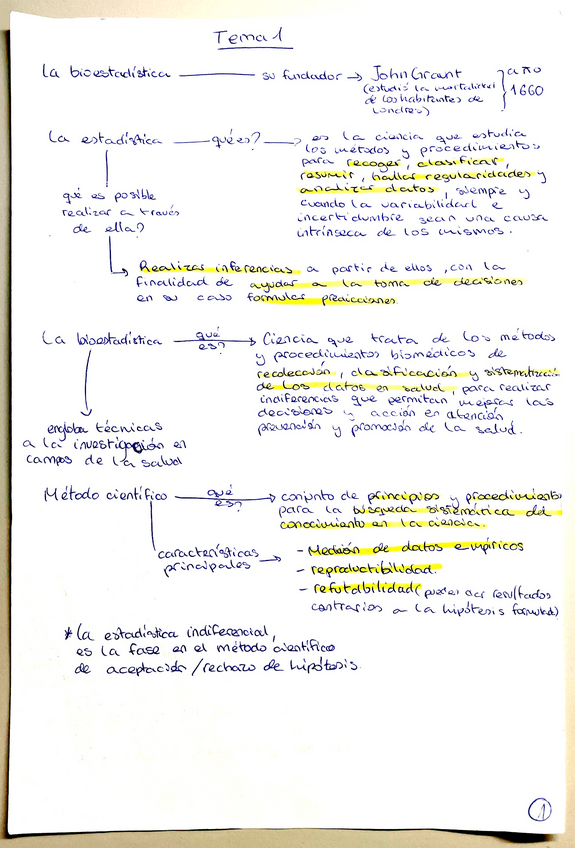 Tema 1
La bioestadística su fundador → John Graunt año
(estudió la mortalidad 1660
de los habitantes de
Londres)
La estadística qué es? → es la ciencia que estudia
los métodos y procedimientos
para recoger, clasificar,
resumir, hallar regularidades y
analizar datos, siempre y
cuando la variabilidad e
incertidumbre sean una causa
intrínseca de los mismos.
qué es posible
realizar a través
de ella?
Realizar inferencias a partir de ellos, con la
finalidad de ayudar a la toma de decisiones
en su caso formular predicciones.
La bioestadística qué es? → Ciencia que trata de los métodos
y procedimientos biomédicos de
recolección, clasificación y sistematización
de los datos en salud, para realizar
indiferencias que permitan mejorar las
decisiones y acción en atención
prevención y promoción de la salud.
engloba técnicas
a la investigación en
campos de la salud
Método científico qué es? → conjunto de principios y procedimientos
para la búsqueda sistemática del
conocimiento en la ciencia.
características
principales →
- Medición de datos empíricos
- reproductibilidad.
- refutabilidad (pueden dar resultados
contrarios a la hipótesis formulada)
* La estadística indiferencial,
es la fase en el método científico
de aceptación / rechazo de hipótesis.
1